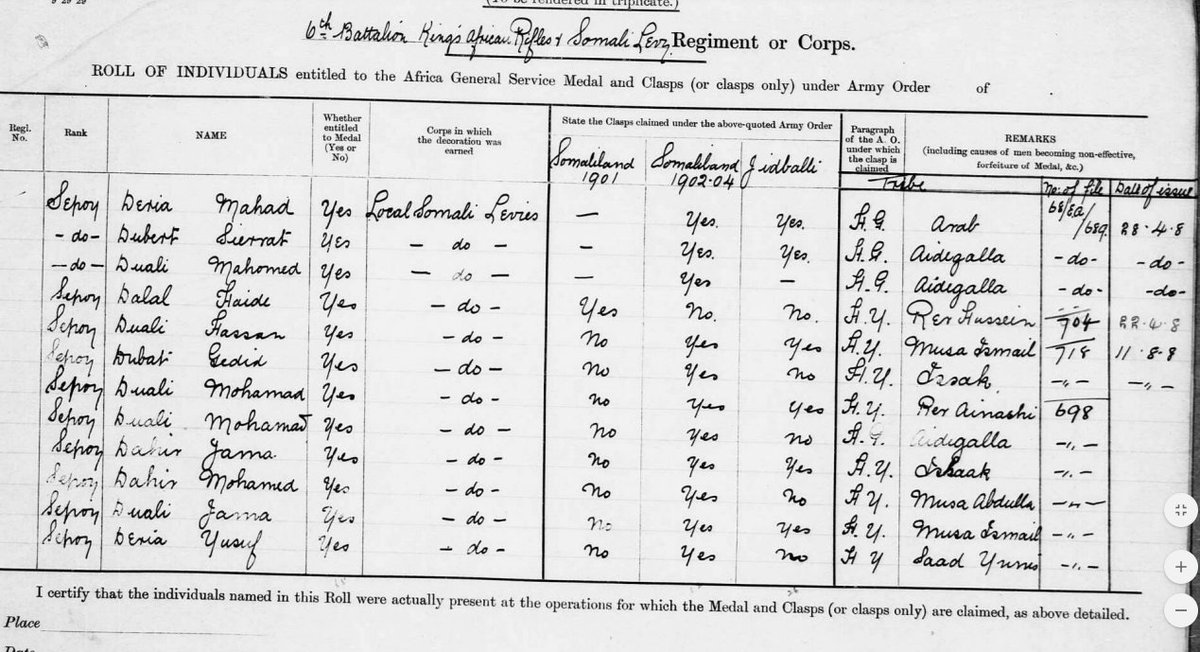 (To be rendered in triplicate.)
6th Battalion King's African Rifles & Somali Levy Regiment or Corps.
ROLL OF INDIVIDUALS entitled to the Africa General Service Medal and Clasps (or clasps only) under Army Order of
Regl. No. Rank NAME Whether entitled to Medal (Yes or No) Corps in which the decoration was earned State the Clasps claimed under the above-quoted Army Order Paragraph of the A. O. under which the clasp is claimed REMARKS (including causes of men becoming non-effective, forfeiture of Medal, &c.)
Somaliland 1901 Somaliland 1902-04 Jidballi Tribe No. of File Date of issue
Sepoy Deria Mahad Yes Local Somali Levies — Yes. Yes. H.G. Arab 68/EA/689 28.4.8
- do - Dubert Sierrat Yes - do - — Yes. Yes. H.G. Aidegalla - do - - do -
- do - Duali Mahomed Yes - do - — Yes — H.G. Aidegalla - do - - do -
Sepoy Dalal Haide Yes - do - Yes No. No. H.Y. Rer Hussein 704 22.4.8
Sepoy Duali Hassan Yes - do - No Yes Yes H.Y. Musa Ismail 718 11.8.8
Sepoy Dubat Gedid Yes - do - No Yes No H.Y. Issak -"- -"-
Sepoy Duali Mohamad Yes - do - No Yes Yes H.Y. Rer Ainashi 698
Sepoy Duali Mohamad Yes - do - No Yes No H.G. Aidegalla -"-
Sepoy Dahir Jama Yes - do - No Yes Yes H.Y. Ishaak -"-
Sepoy Dahir Mohamed Yes - do - No Yes No H.Y. Musa Abdulla -"-
Sepoy Duali Jama Yes - do - No Yes Yes H.Y. Musa Ismail -"-
Sepoy Deria Yusuf Yes - do - No Yes No H Y Saad Yunis -"-
I certify that the individuals named in this Roll were actually present at the operations for which the Medal and Clasps (or clasps only) are claimed, as above detailed.
Place
Date